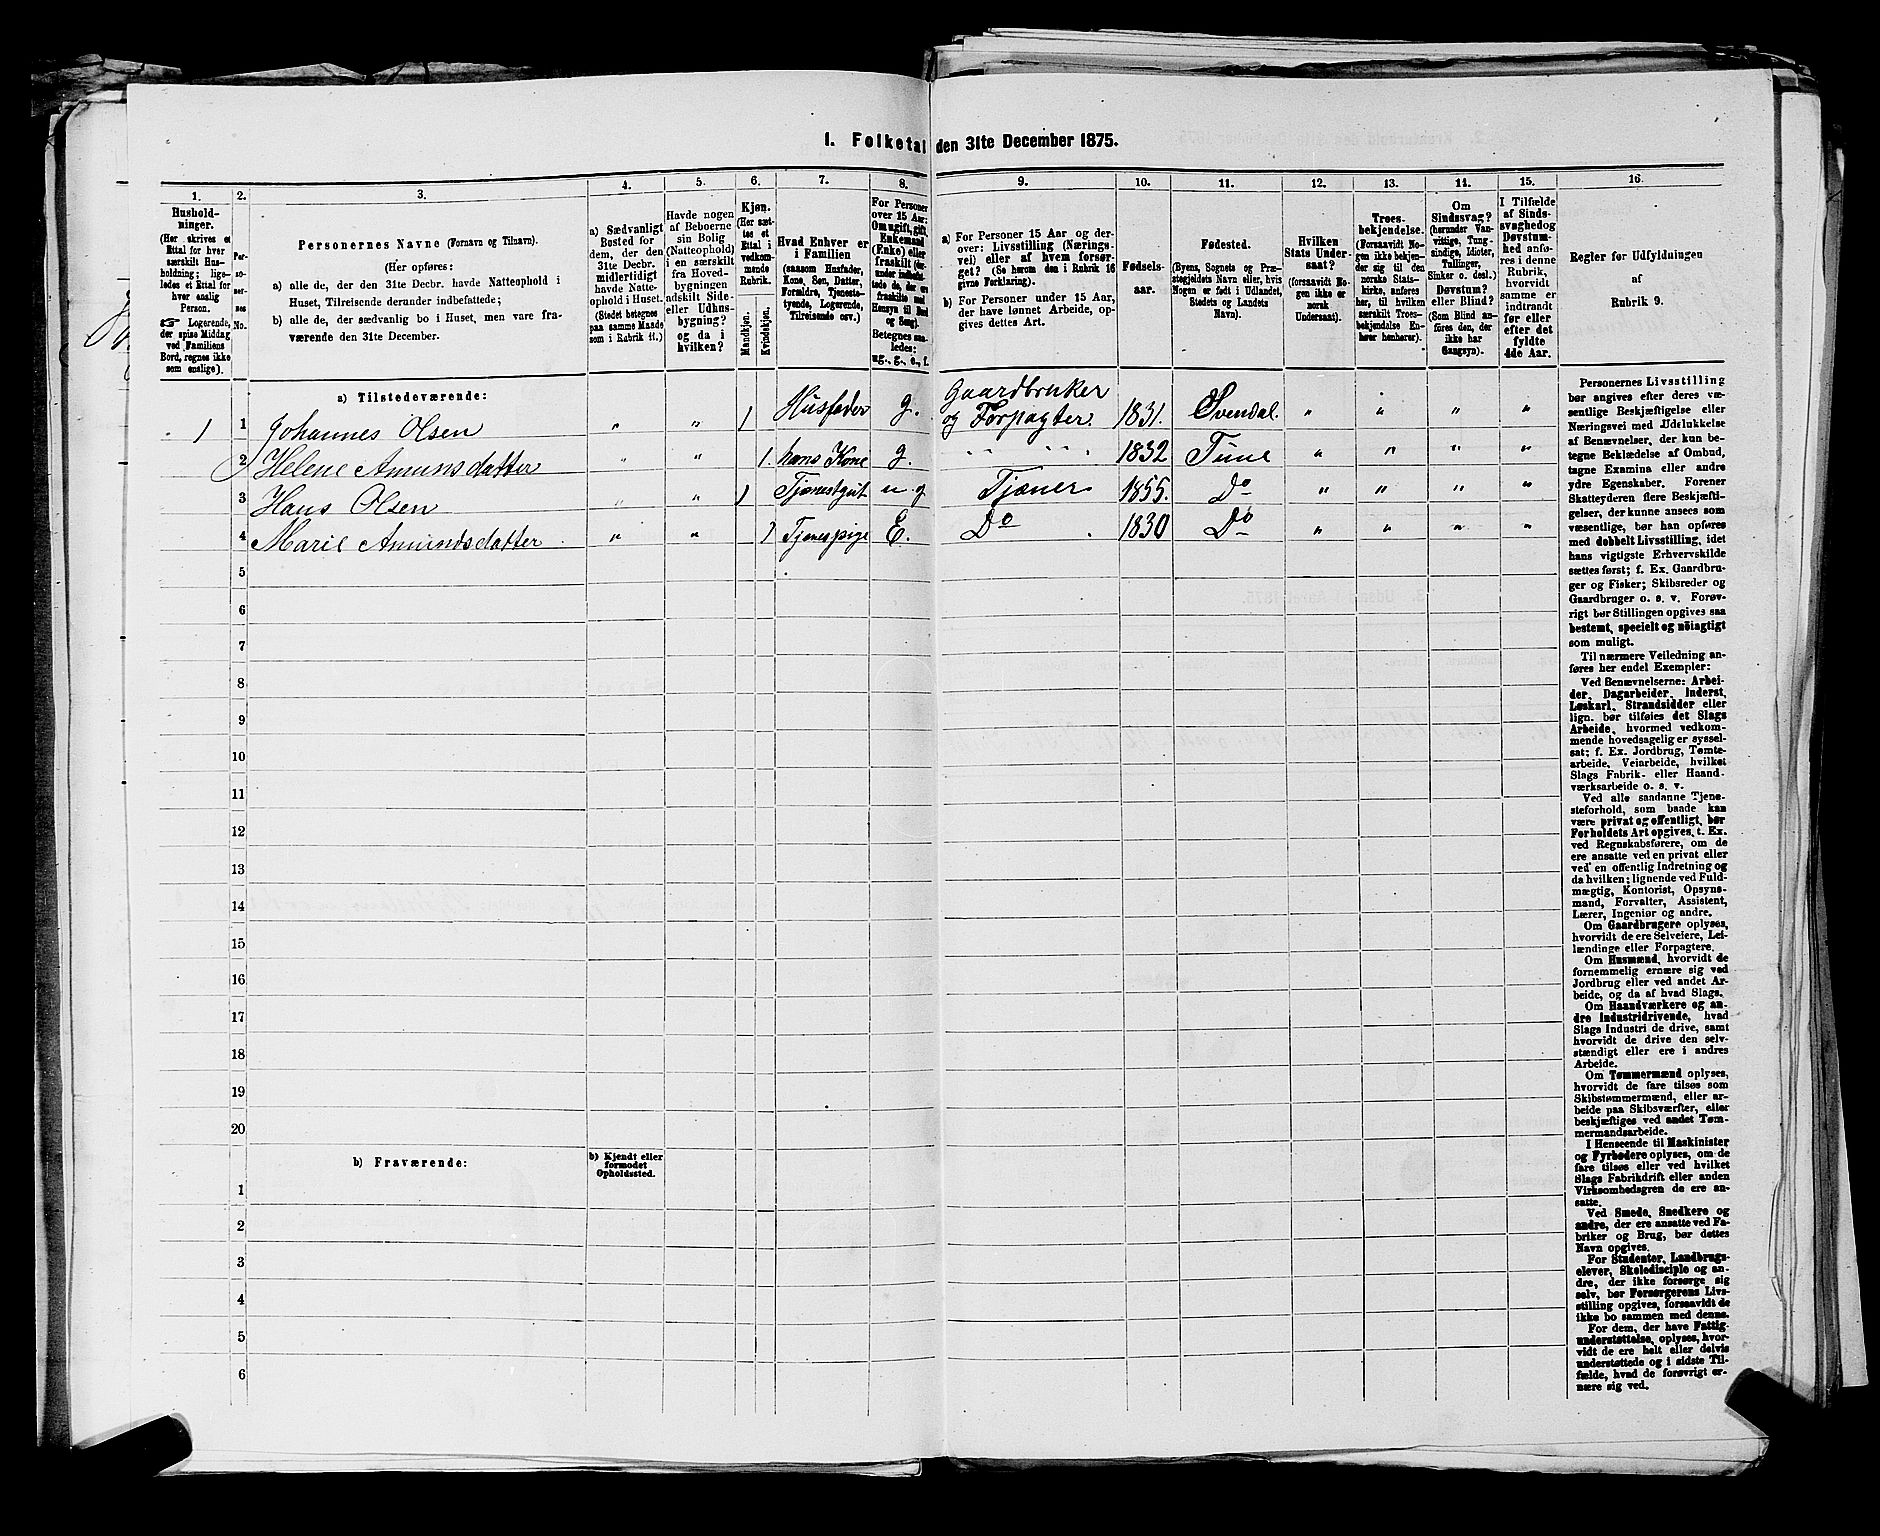 1. Folketal den 31te December 1875.
1.
2.
3.
4.
5.
6.
7.
8.
9.
10.
11.
12.
13.
14.
15.
16.
Hushold-
ninger.
(Her skrives et
Ettal for hver
særskilt Hus-
holdning; lige-
ledes et Ettal for
hver enslig
Person.
☞ Logerende,
der spise Middag
ved Familiens
Bord, regnes ikke
som enslige).
Per-
so-
ner-
nes
No.
Personernes Navne (Fornavn og Tilnavn).
(Her opføres:
a) alle de, der den 31te Decbr. havde Natteophold i
Huset, Tilreisende derunder indbefattede;
b) alle de, der sædvanlig bo i Huset, men vare fra-
værende den 31te December.
a) Sædvanligt
Bosted for
dem, der den
31te Decbr.
midlertidigt
havde Natte-
ophold i Huset.
(Stedet betegnes
paa samme Maade
som i Rubrik 11.)
Havde nogen
af Beboerne
sin Bolig
(Natteophold)
i en særskilt
fra Hoved-
bygningen
adskilt Side-
eller Udhus-
bygning?
og da i
hvilken?
Kjøn.
(Her sæt-
tes et
Ettal i
vedkom-
mende
Rubrik.
Mandkjøn.
Kvindekjøn.
Hvad Enhver er
i Familien
(saasom Husfader,
Kone, Søn, Datter,
Forældre, Tjeneste-
tyende, Logerende,
Tilreisende osv.)
For Personer
over 15 Aar:
Om ugift, gift,
Enkemand
(Enke) eller
fraskilt
Betegnes saa-
ledes:
ug., g., e., f.
a) For Personer 15 Aar og der-
over: Livsstilling (Nærings-
vei) eller af hvem forsør-
get? (Se herom den i Rubrik 16
givne Forklaring).
b) For Personer under 15 Aar,
der have lønnet Arbeide, op-
gives dettes Art.
Fødsels-
aar.
Fødested.
(Byens, Sognets og Præ-
stegjeldets Navn eller, hvis
Nogen er født i Udlandet,
Stedets og Landets
Navn).
Hvilken
Stats Under-
saat?
(forsaavidt No-
gen ikke er
norsk
Undersaat).
Troes-
bekjendelse.
(Forsaavidt No-
gen ikke bekjen-
der sig til den
norske Stats-
kirke, anføres
her, til hvilken
særskilt Troes-
bekjendelse En-
hver henhører).
Om
Sindssvag?
(herunder Van-
vittige, Tung-
sindige, Idioter,
Tullinger,
Sinker o. desl.)
Døvstum?
eller Blind?
(Som Blind an-
føres den, der
ikke har
Gangsyn).
I Tilfælde
af Sinds-
svaghed og
Døvstum-
hed anfø-
res i denne
Rubrik,
hvorvidt
samme er
indtraadt
før eller
efter det
fyldte
4de Aar.
Regler før Udfyldningen
af
Rubrik 9.
a) Tilstedeværende:
1 1 Johannes Olsen " " 1 Husfader g. Gaardbruker og Forpagter. 1831. Svendal. " " " "
2 Helene Amunsdatter " " 1. hans Kone g. " " " " 1832 Tune " " " "
3 Hans Olsen " " 1 Tjenestgut u g Tjener 1855. Do " " " "
4 Marie Amundsdatter " " 1 Tjenespige E. Do 1830 Do " " " "
5
6
7
8
9
10
11
12
13
14
15
16
17
18
19
20
b) Fraværende:
b) Kjendt eller
formodet
Opholdssted.
1
2
3
4
5
6
Personernes Livsstilling
bør angives efter deres væ-
sentlige Beskjæftigelse eller
Næringsvei med Udelukkelse
af Benævnelser, der kun be-
tegne Beklædelse af Ombud,
tagne Examina eller andre
ydre Egenskaber. Forener
Skatteyderen flere Beskjæfti-
gelser, der kunne ansees som
væsentlige, bør han opføres
med dobbelt Livsstilling, idet
hans vigtigste Erhvervskilde
sættes først; f. Ex. Gaardbru-
ger og Fisker; Skibsreder og
Gaardbruger o. s. v. Forøv-
rigt bør Stillingen opgives saa
bestemt, specielt og nöiagtigt
som muligt.
Til nærmere Veiledning an-
føres her endel Exempler:
Ved Benævnelserne: Arbei-
der, Dagarbeider, Inderst,
Løskarl, Strandsidder eller
lign. bør tilføies det Slags
Arbeide, hvormed vedkom-
mende hovedsagelig er syssel-
sat; f. Ex. Jordbrug, Tømte-
arbeide, Veiarbeide, hvilket
Slags Fabrik- eller Haand-
værksarbeide o. s. v.
Ved alle saadanne Tjene-
steforhold, som baade kan
være privat og offentligt, bør
Forholdets Art opgives, t. Ex.
ved Regnskabsførere, om de
ere ansatte ved en privat eller
ved en offentlig Indretning og
da hvilken; lignende ved Fuld-
mægtig, Kontorist, Opsyns-
mand, Forvalter, Assistent,
Lærer, Ingeniør og andre.
Om Gaardbrugere oplyses,
hvorvidt de ere Selveiere, Lei-
lændinge eller Forpagtere.
Om Husmænd, hvorvidt de
fornemmelig ernære sig ved
Jordbrug eller ved andet Ar-
beide, og da af hvad Slags.
Om Haandværkere og an-
dre Industridrivende, hvad
Slags Industri de drive, samt
hvorvidt de drive den selv-
stændigt eller ere i andres
Arbeide.
Om Tømmermænd oplyses,
hvorvidt de fare tilsøs som
Skibstømmermænd, eller ar-
beide paa Skibsværfter, eller
beskjæftiges ved andet Tøm-
mermandsarbeide.
I Henseende til Maskinister
og Fyrbødere oplyses, om de
fare tilsøs eller ved hvilket
Slags Fabrikdrift eller anden
Virksomhedsgren de ere an-
satte.
Ved Smede, Snedkere og
andre, der ere ansatte ved Fa-
briker og Brug, bør dettes
Navn opgives.
For Studenter, Landbrugs-
elever, Skoledisciple og an-
dre, der ikke forsørge sig
selv, bør Forsørgerens Livs-
stilling opgives, forsaavidt de
ikke bo sammen med denne.
For dem, der have Fattig-
understøttelse, oplyses, hvor-
vidt de ere helt eller delvis
understøttede og i sidste Til-
fælde, hvad de forøvrigt er-
nære sig ved.